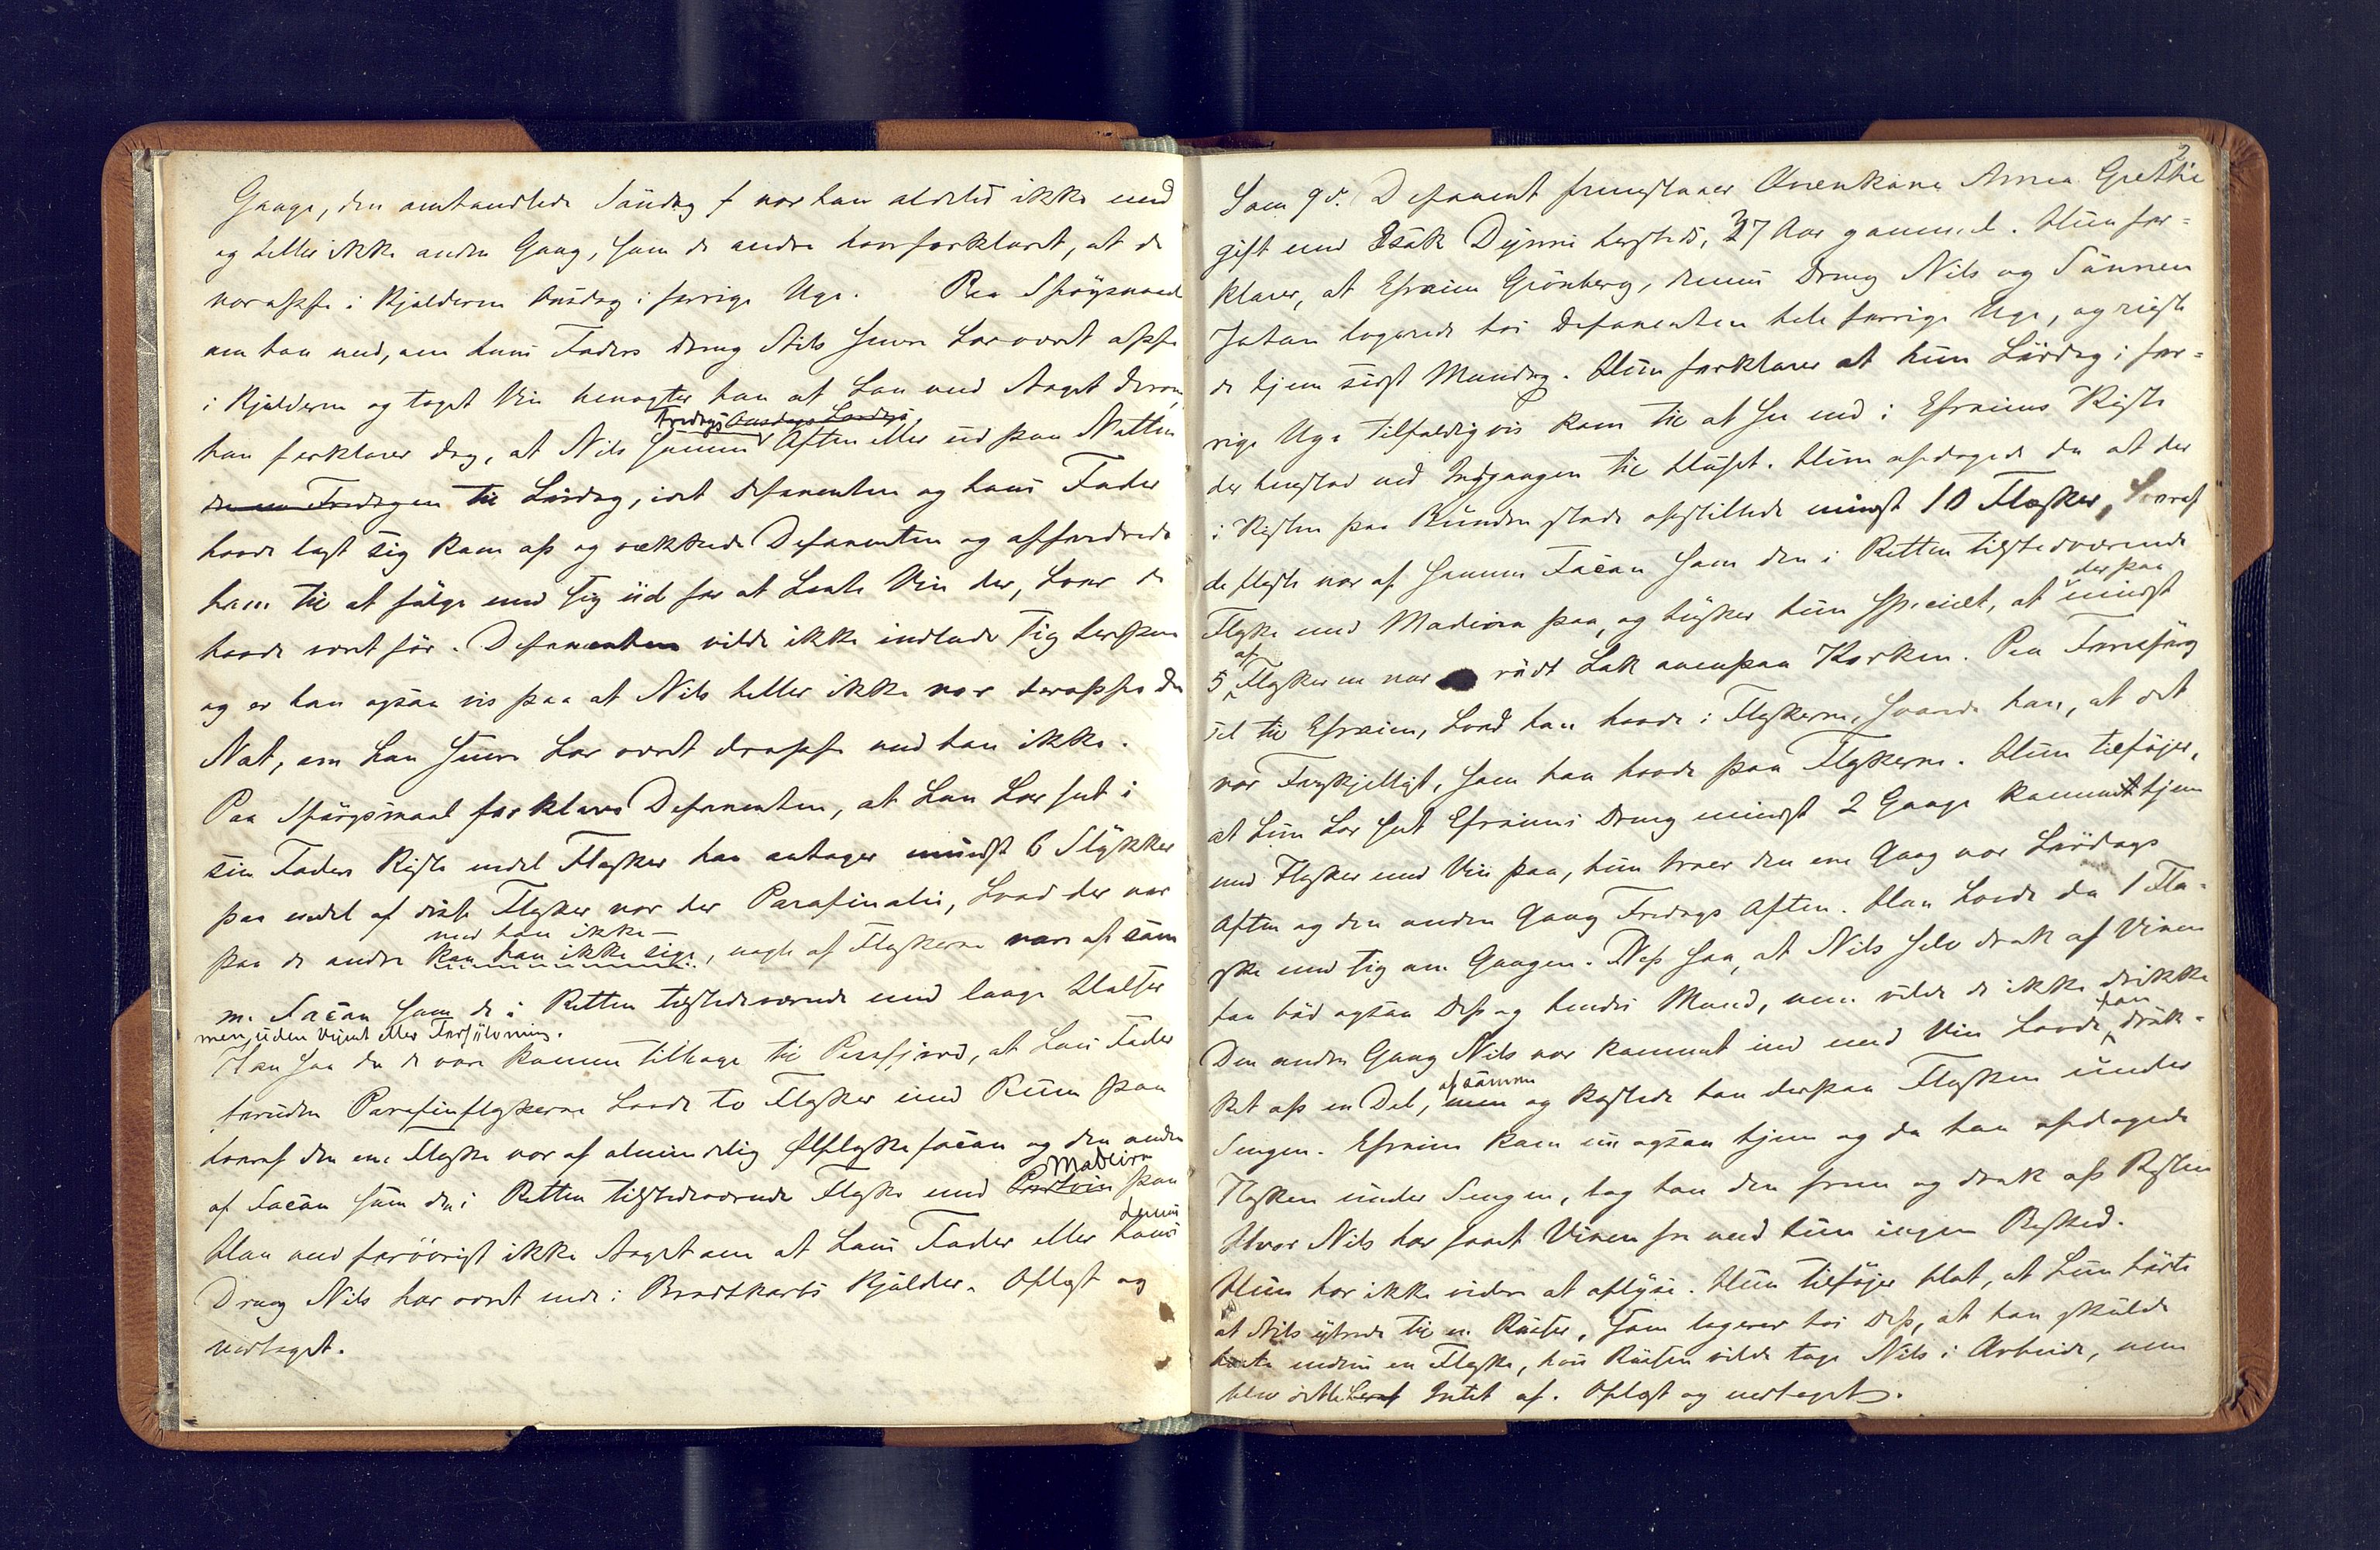 Gange, den omhandlede Søndag f var han aldeles ikke med
og heller ikke anden Gang, som de andre har forklaret, at de
var oppe i Kjelderen Onsdag i forrige Uge. Paa Spørgsmaal
om han ved, om hans Faders Dreng Nils senere har været oppe
i Kjelderen og taget Vin benegter han at han ved Noget derom,
Fredags Onsdags Lørdags
han forklarer dog, at Nils samme Aften eller ud paa Natten
Fredagen til Lørdag, idet Deponenten og hans Fader
havde lagt sig kom op og vækkede Deponenten og opfordrede
ham til at følge med sig ud for at hente Vin der, hvor de
havde været før. Deponenten vilde ikke indlade sig herpaa
og er han ogsaa vis paa at Nils heller ikke var deroppe den
Nat, om han senere har været deroppe ved han ikke.
Paa Spørgsmaal forklarer Deponenten, at han har seet i
sin Faders Kiste endel Flasker han antager mindst 6 Stykker
paa endel af disse Flasker var der Parafinolie, hvad der var
ved han ikke –
paa de andre kan han ikke sige, nogle af Flaskerne vare af sam
m. Facon som de i Retten tilstedeværende med lange Halser
men uden Vignet eller Forsølvning.
Han saa da de vare komne tilbage til Persfjord, at hans Fader
foruden Parafinflaskerne havde to Flasker med Rum paa
hvoraf den ene Flaske var af almindelig Ølflaskefacon og den anden
Madeira
af Facon som den i Retten tilstedeværende Flaske med Portvin paa
dennes
Han ved forøvrigt ikke Noget om at hans Fader eller hans
Dreng Nils har været inde i Brodtkorbs Kjelder. Oplæst og
vedtaget.
2
Som 9de Deponent fremstaaer Qvenkone Anna Grethe
gift med Isak Dynni hersteds, 37 Aar gammel. Hun for=
klarer, at Efraim Grönberg, dennes Dreng Nils og Sønnen
Johan logerede hos Deponenten hele forrige Uge, og reiste
de hjem sidst Mandag. Hun forklarer at hun Lørdag i for=
rige Uge tilfældigvis kom til at see ned i Efraims Kiste
der henstod ved Indgangen til Huset. Hun opdagede da at der
i Kisten paa Bunden stode opstillede mindst 10 Flasker, hvoraf
de fleste var af samme Facon som den i Retten tilstedeværende
der paa
Flaske med Madeira paa, og husker hun specielt, at mindst
af
5 Flaskerne var rødt Lak ovenpaa Korken. Paa Forespørg
sel til Efraim, hvad han havde i Flaskerne, svarede han, at det
var Forskjelligt, som han havde paa Flaskerne. Hun tilføjer,
at hun har seet Efraims Dreng mindst 2 Gange kommet hjem
med Flasker med Vin paa, hun troer den ene Gang var Lørdags
Aften og den anden Gang Fredags Aften. Han havde da 1 Fla-
ske med sig om Gangen. Dep. saa, at Nils selv drak af Vinen
han bød ogsaa Dep. og hendes Mand, men vilde de ikke drikke
han
Den anden Gang Nils var kommet ind med Vin havde druk-
af samme
ket op en Del, men og kastede han derpaa Flasken under
Sengen. Efraim kom nu ogsaa hjem og da han opdagede
Flasken under Sengen, tog han den frem og drak op Resten
Hvor Nils har faaet Vinen fra ved hun ingen Besked.
Hun har ikke videre at oplyse. Hun tilføjer blot, at hun hørte
at Nils ytrede til en Russer, som logerer hos Dep., at han skulde
hente endnu en Flaske, hvis Russen vilde tage Nils i Arbeide, men
blev dette heraf Intet af. Oplæst og vedtaget.